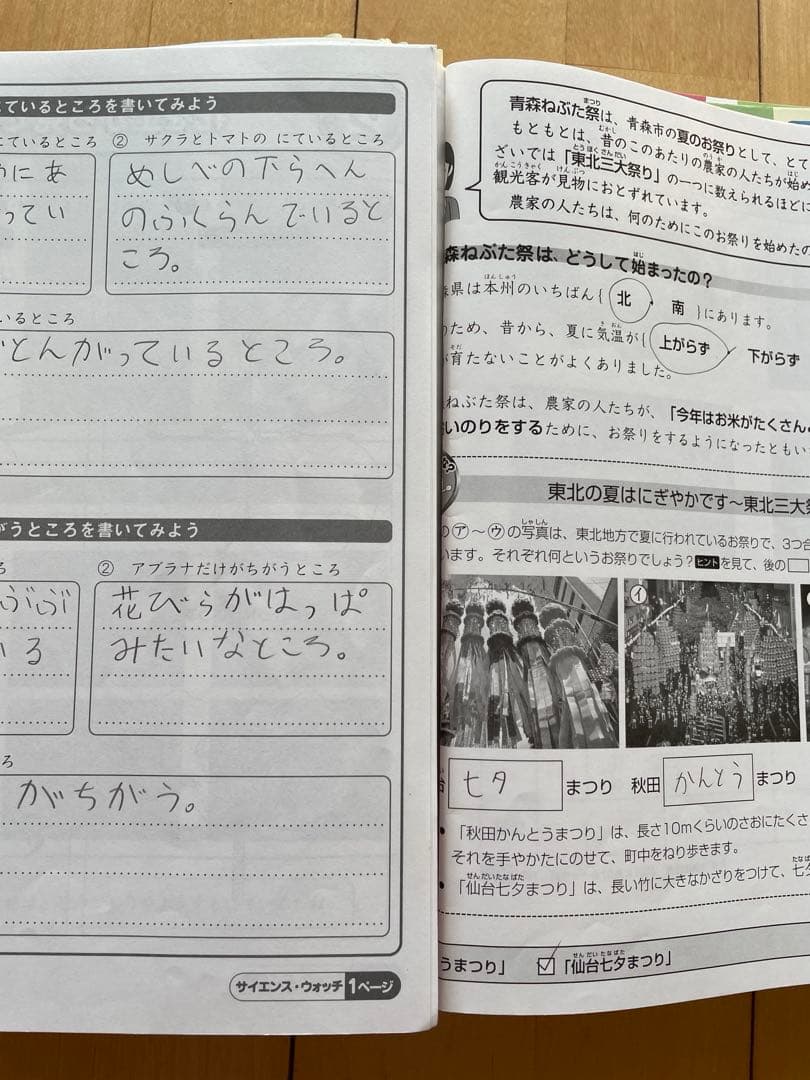 ているところを書いてみよう
にているところ ② サクラとトマトの にているところ
にあ
ってい
めしべの下らへん
のふくらんでいると
ころ。
いるところ
とんがっているところ。
がうところを書いてみよう
② アブラナだけがちがうところ
ぶぶ
いる
花びらがはっぱ
みたいなところ。
ろ
がちがう。
サイエンス・ウォッチ 1ページ
青森ねぶた祭は、青森市の夏のお祭りとして、とて
もともとは、昔のこのあたりの農家の人たちが始め
ざいでは「東北三大祭り」の一つに数えられるほどに
観光客が見物におとずれています。
農家の人たちは、何のためにこのお祭りを始めたの
森ねぶた祭は、どうして始まったの？
県は本州のいちばん{ 北 ・ 南 }にあります。
ため、昔から、夏に気温が{ 上がらず ・ 下がらず
が育たないことがよくありました。
ねぶた祭は、農家の人たちが、「今年はお米がたくさん
いのりをするために、お祭りをするようになったともい
東北の夏はにぎやかです～東北三大祭
の㋐～㋒の写真は、東北地方で夏に行われているお祭りで、3つ合
います。それぞれ何というお祭りでしょう？ヒントを見て、後の□
イ
台 七夕 まつり 秋田 かんとう まつり
・「秋田かんとうまつり」は、長さ10mくらいのさおにたくさ
それを手やかたにのせて、町中をねり歩きます。
・「仙台七夕まつり」は、長い竹に大きなかざりをつけて、七夕
うまつり」 ☑「仙台七夕まつり」